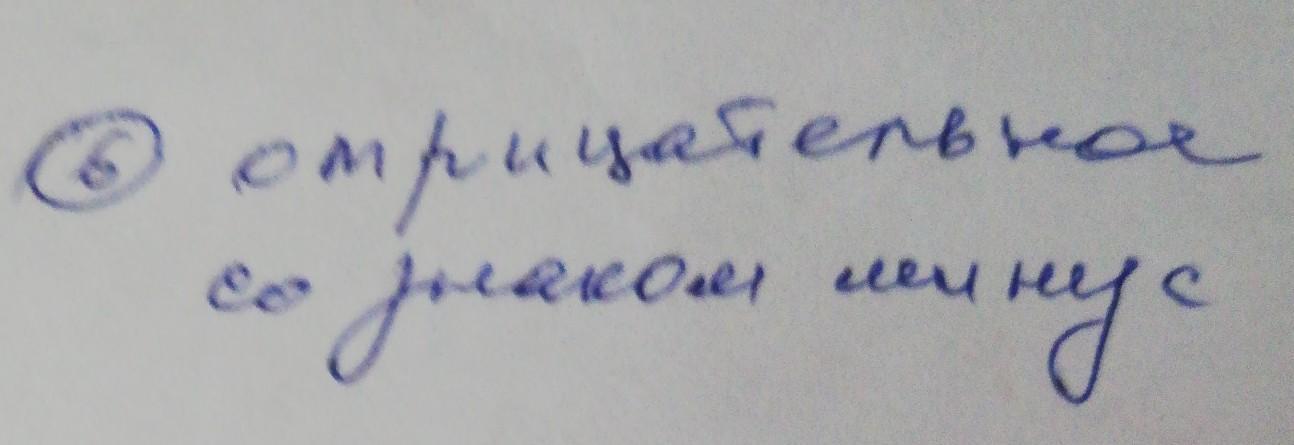 б отрицательное
со знаком минус